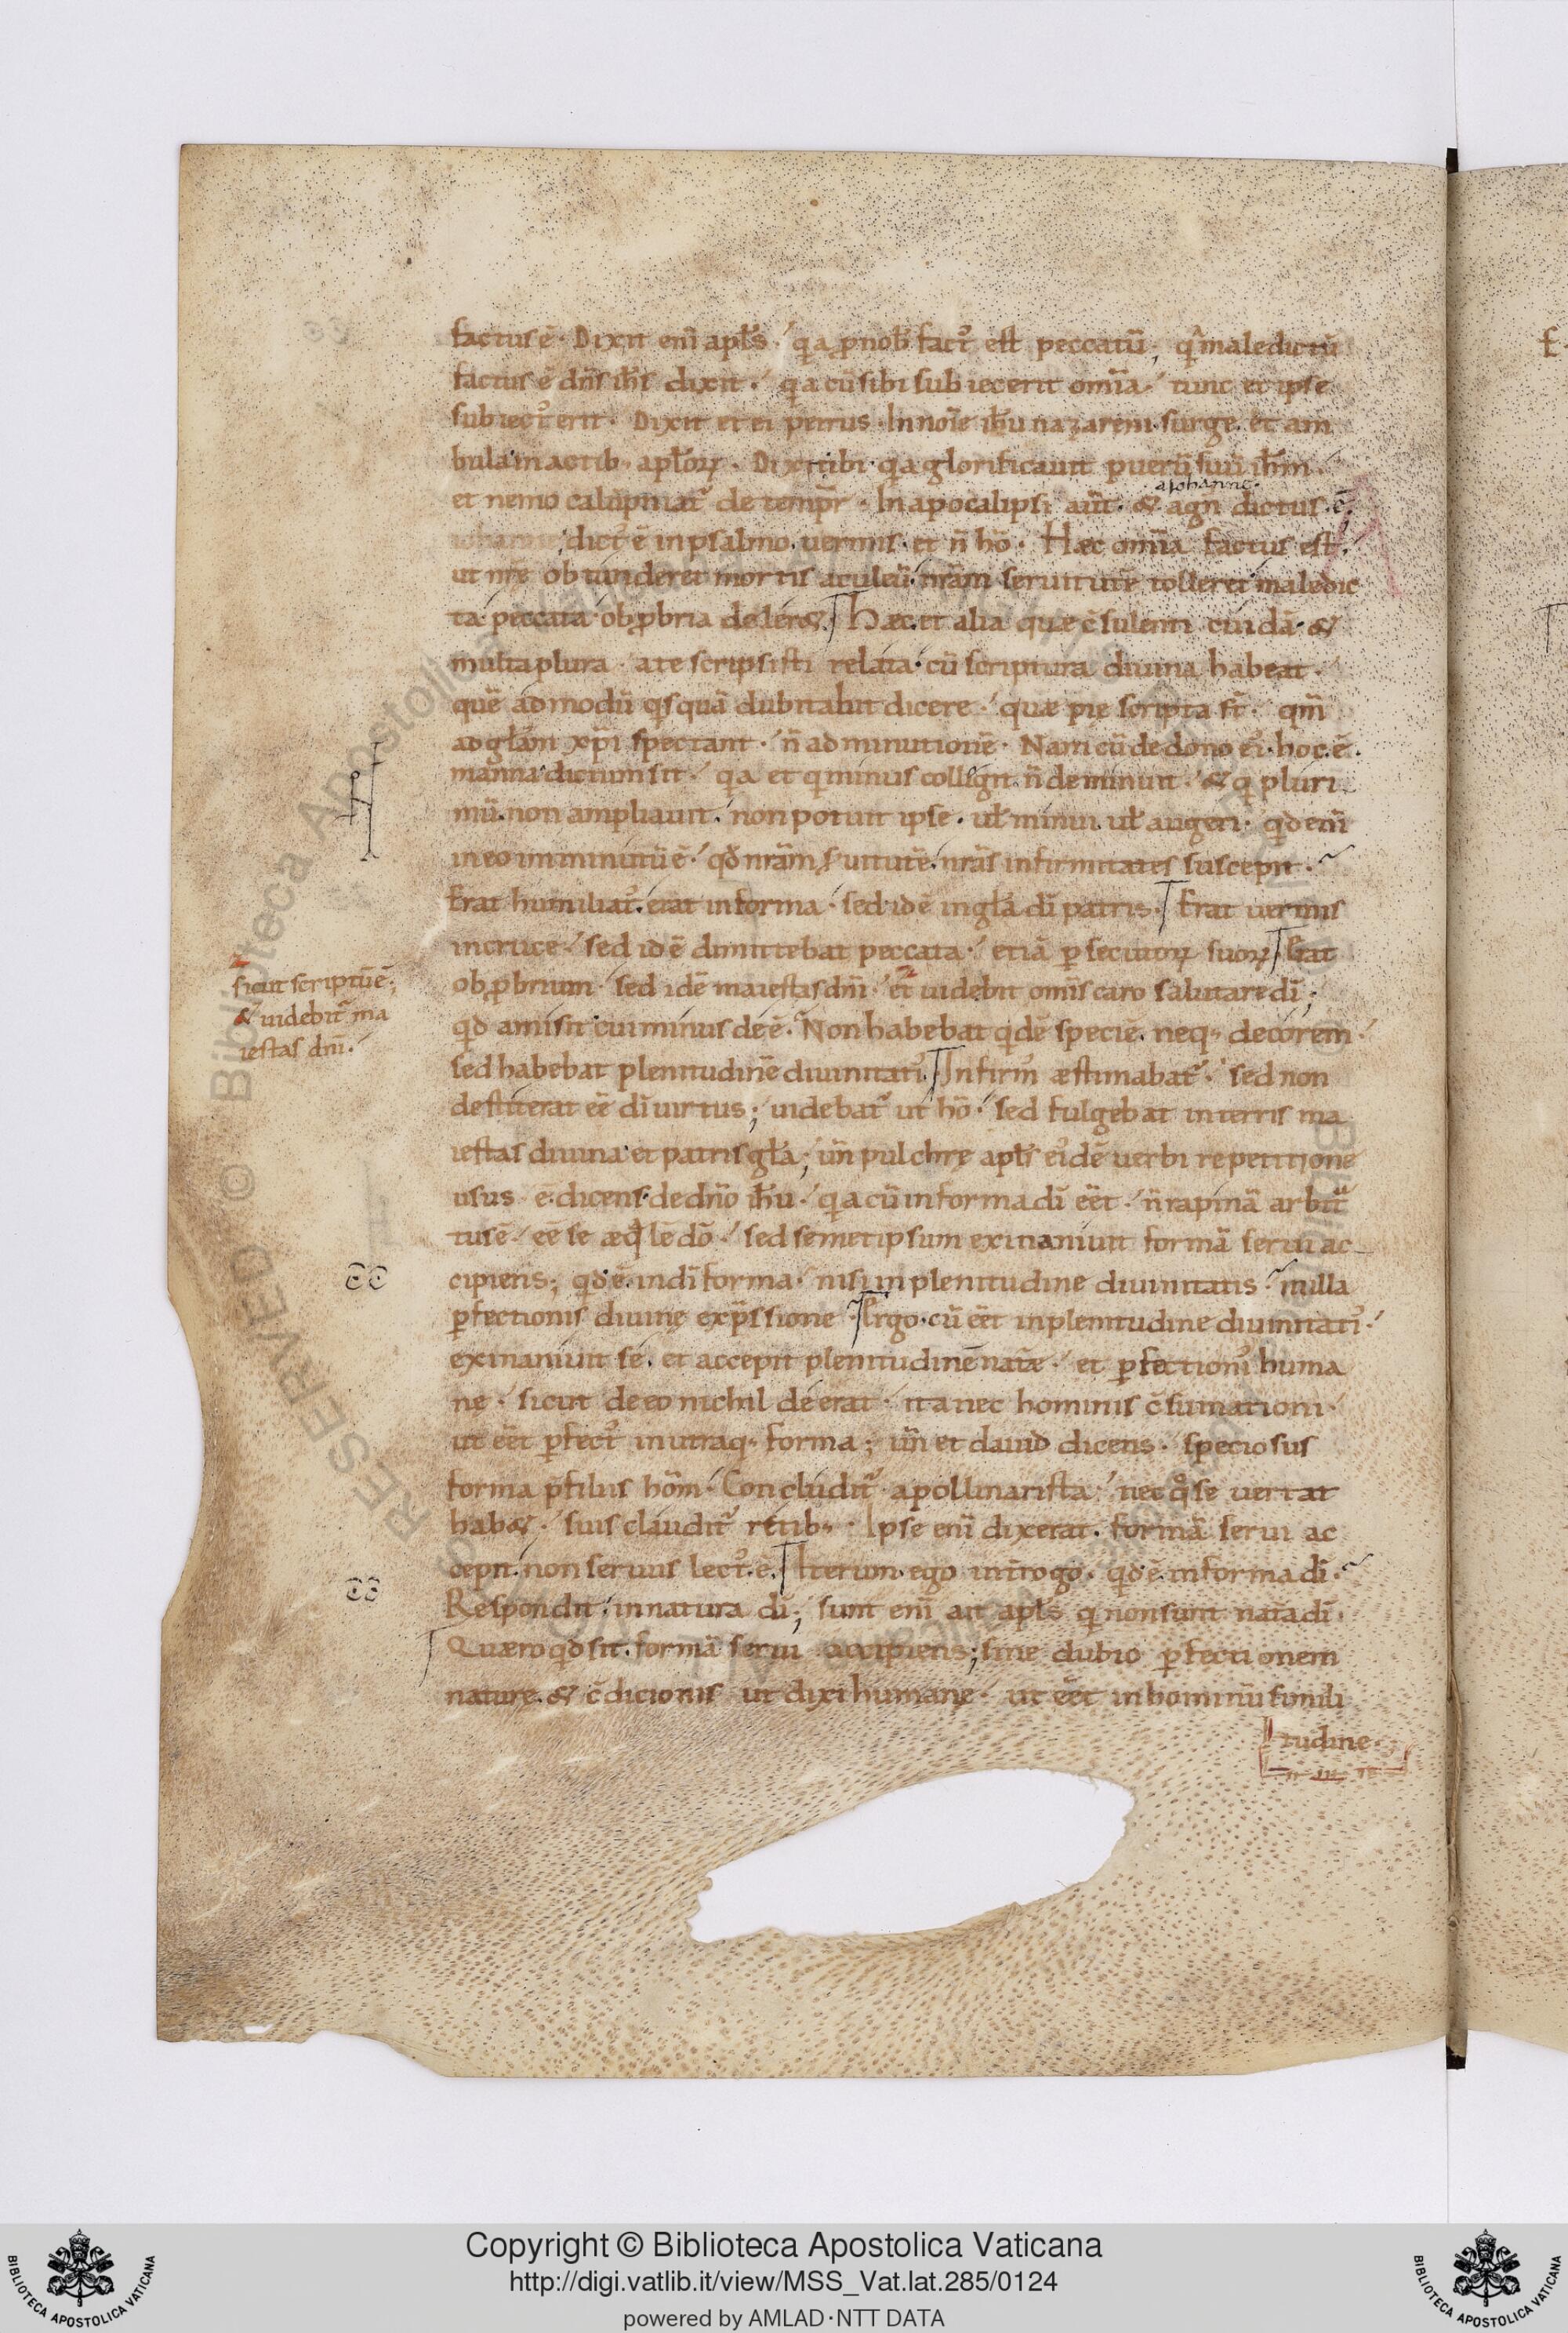 factus ē· Dixit enī apl̄s· q̄a p̄nob̄ fact᷒ est peccatū; q̄ maledictū
factus ē dn̄s ih̄s dixit· q̄a cū sibi subiecerit om̄ia· tunc et ipse
subiect᷒ erit· Dixit et ei petrus· In noīe ih̄u nazareni· surge· et am
bula in actib; apl̄oꝝ· Dixit tibi· q̄a glorificauit puerū suū ih̄m·
a Iohanne·
et nemo calūpniat᷑ de temp̄r· In apocalipsi aūt· & agn̄ dictus· ē·
iohanne, dict᷒ ē in psalmo· uermis· et n̄ hō· Hæc om̄ia factus est·
ut nr̄e obtunderet mortis aculeū· nrām seruitutē tolleret maledic
ta· peccata· obꝓbria deler&· Hæc et alia quæ c̄sulenti cuidā· &
multa plura· a te scripsisti relata· cū scriptura diuina habeat·
quē admodū qˢquā dubitabit dicere· quæ pie scripta st̄· qm̄
ad gl̄am xp̄i spectant· n̄ ad minutionē· Nam cū de dono ei᷒· hoc ē·
manna dictum sit· q̄a et q minus colligit· n̄ deminuit· & q pluri
mū· non ampliauit· non potuit ipse· ul̄ minui· ul̄ augeri· qd̄ enī
in eo imminutū ē· qd̄ nrām s̄uitutē· nrās infirmitates suscepit·
Erat humiliat᷒· erat in forma· sed idē in gl̄a dī patris· Erat uermis
in cruce· sed idē dimittebat peccata· etiā ꝑsecutoꝝ suoꝝ· Erat
obꝓbrium· sed idē maiestas dn̄i· et uidebit omīs caro salutare dī;
sicut scriptū ē;
& uidebit᷑ ma
iestas dn̄i·
qd̄ amisit cui minus deē· Non habebat qdē speciē· neq; decorem·
sed habebat plenitudinē diuinitati᷒· Infirm᷒ æstimabat᷑· sed non
destiterat eē dī uirtus; uidebat᷑ ut hō· sed fulgebat in terris ma
iestas diuina et patris gl̄a; un̄ pulchre apl̄s ei᷒dē uerbi repetitione
usus ē· dicens· de dn̄o ih̄u· q̄a cū in forma dī eēt· n̄ rapinā arbit̄
tus ē· eē se æqlē dō· sed semetipsum exinaniuit formā serui ac
cipiens; qd̄ ē· in dī forma· nisi in plenitudine diuinitatis· in illa
ꝑfectionis diuinę exp̄ssione· Ergo· cū eēt in plenitudine diuinitati᷒·
exinaniuit se· et accepit plenitudinē natæ· et ꝑfectioni᷒ huma
ne· sicut deo nichil deerat· ita nec hominis c̄sumationi·
ut eēt ꝑfect᷒ in utraq; forma; un̄ et dauid dicens· speciosus
forma p̄ filiis hōm· Concludit᷑ apollinarista· nec qͦ se uertat
hab&· suis claudit᷑ retib;· Ipse enī dixerat· formā serui ac
cepit· non seruus lect᷒ ē· Iterum ego introgo· qd̄ ē in forma dī·
Respondit· in natura dī; sunt enī ait apl̄s q non sunt natā dī·
Quæro qd̄ sit· formā serui accipiens; sine dubio ꝑfectionem
nature· & c̄dicionis ut dixi humane· ut eēt in hominū simili
tudine·
Copyright © Biblioteca Apostolica Vaticana
http://digi.vatlib.it/view/MSS_Vat.lat.285/0124
powered by AMLAD·NTT DATA